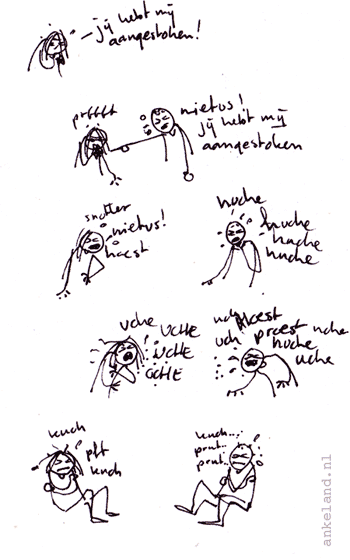 - jij hebt mij
aangestoken!
prffft
nietus!
jij hebt mij
aangestoken
snotter
nietus!
hoest
huche
huche
huche
huche
uche UCHE
UCHE
UCHE
uch
uch
proest uche
huche
uche
kuch
pft
kuch
kuch...
prut..
prut..
ankeland.nl